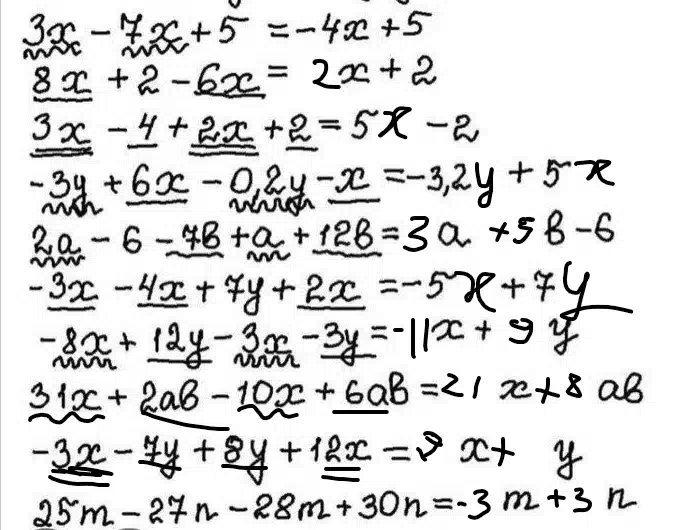 3x - 7x + 5 = -4x + 5
8x + 2 - 6x = 2x + 2
3x - 4 + 2x + 2 = 5x - 2
-3y + 6x - 0,2y - x = -3,2y + 5x
2a - 6 - 7в + a + 12в = 3a + 5в - 6
-3x - 4x + 7y + 2x = -5x + 7y
-8x + 12y - 3x - 3y = -11x + 9y
31x + 2aв - 10x + 6aв = 21x + 8aв
-3x - 7y + 8y + 12x = 9x + y
25m - 27n - 28m + 30n = -3m + 3n